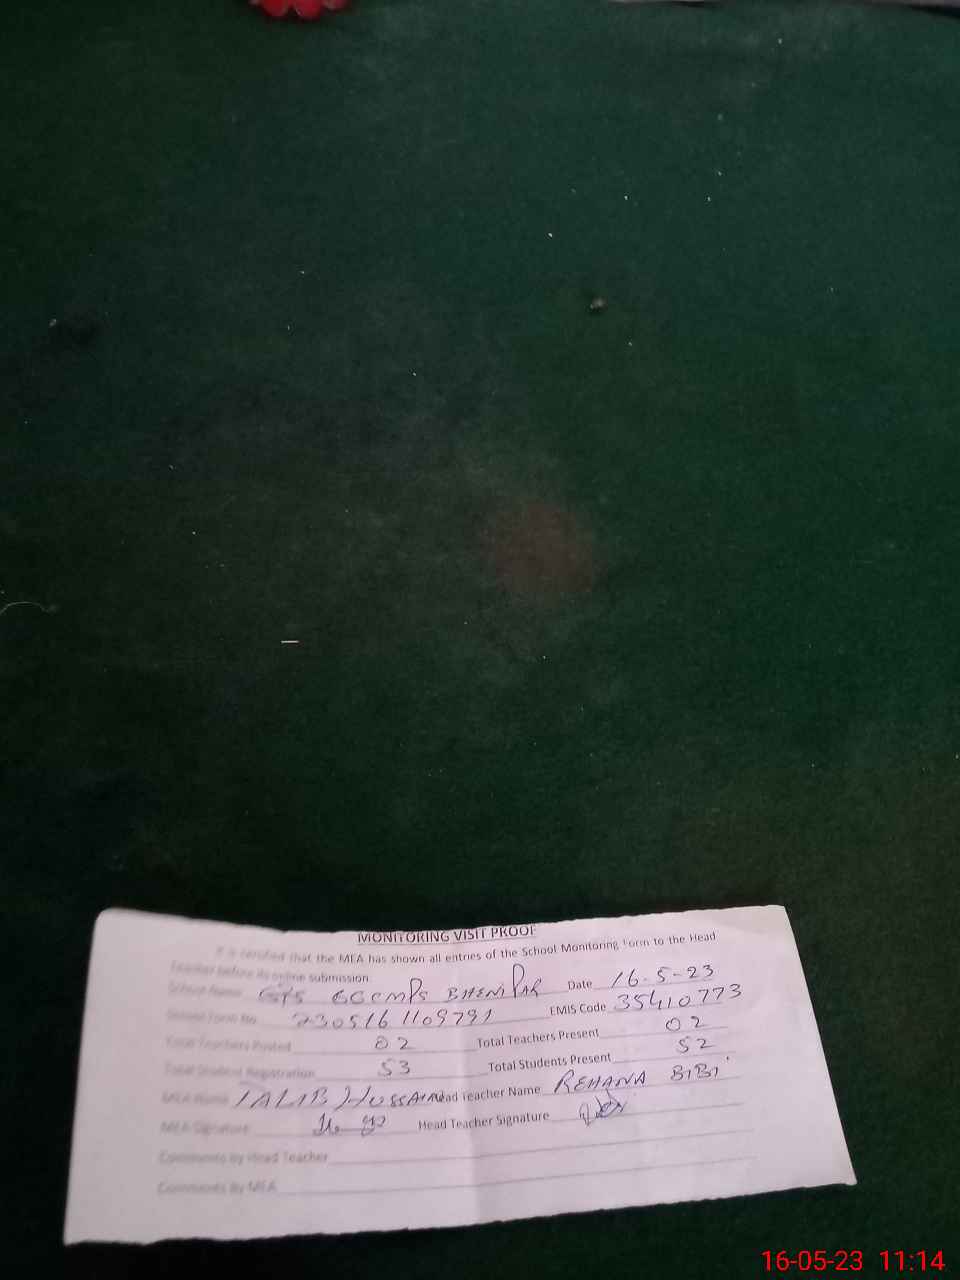 MONITORING VISIT PROOF
It is certified that the MEA has shown all entries of the School Monitoring Form to the Head
Teacher before its online submission.
School Name GPS GGCMPS BHENI PAR Date 16-5-23
Online Form No 230516 1109791 EMIS Code 35410773
Total Teachers Posted 02 Total Teachers Present 02
Total Student Registration 53 Total Students Present 52
MEA Name TALIB HUSSAIN Head Teacher Name REHANA BIBI
MEA Signature Head Teacher Signature
Comments by Head Teacher
Comments By MEA
16-05-23 11:14